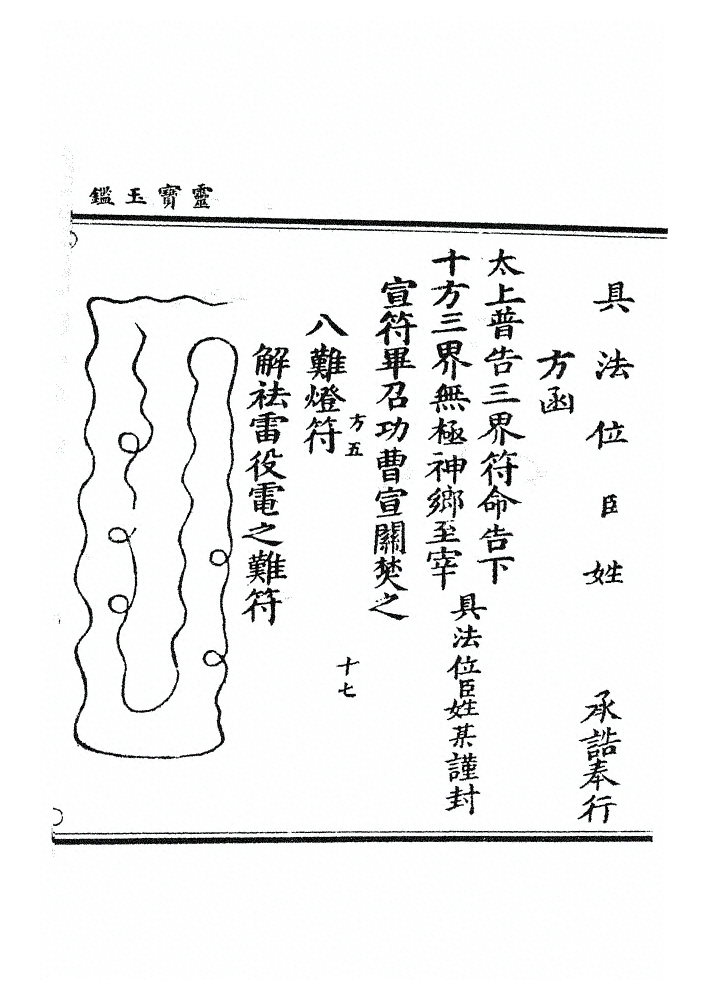 靈寶玉鑑
具法位臣姓 承誥奉行
方函
太上普告三界符命告下
十方三界無極神鄉至宰 具法位臣姓某謹封
宣符畢召功曹宣關焚之
十七
八難燈符 方五
解祛雷役電之難符